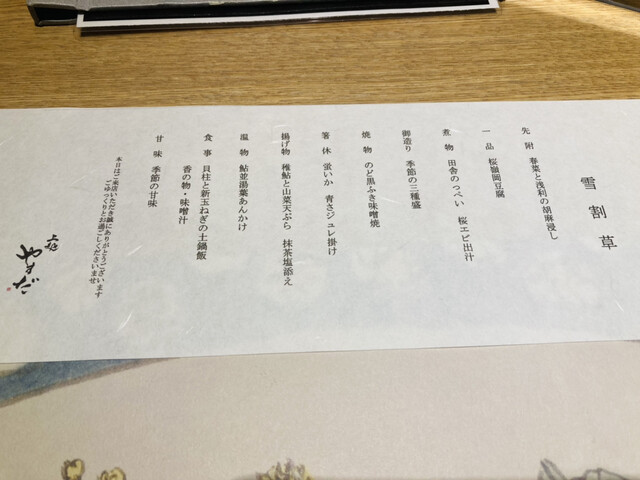 雪割草
先附 春菜と浅利の胡麻浸し
一品 桜嶺岡豆腐
煮物 田舎のっぺい 桜エビ出汁
御造り 季節の三種盛
焼物 のど黒ふき味噌焼
箸休 蛍いか 青さジュレ掛け
揚げ物 稚鮎と山菜天ぷら 抹茶塩添え
温物 鮎並湯葉あんかけ
食事 貝柱と新玉ねぎの土鍋飯
香の物・味噌汁
甘味 季節の甘味
本日はご来店いただき誠にありがとうございます
ごゆっくりとお過ごしくださいませ
やすだ